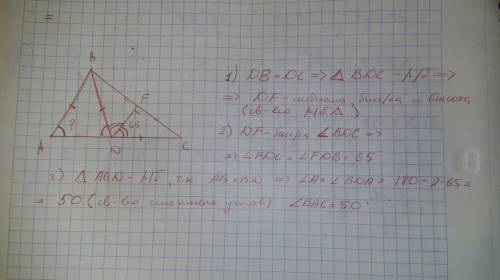 B
F
?
65
A
D
C
1) DB = DC => △ BDC - р/б =>
=> DF - медиана, бисс-са и высота
(св-во р/б △)
2) DF - бисс-са ∠BDC =>
=> ∠FDC = ∠FDB = 65
3) △ ABD - р/б, т.к. AB = BD => ∠A = ∠BDA = 180 - 2·65 =
= 50 (св-во смежных углов) ∠BAC = 50°